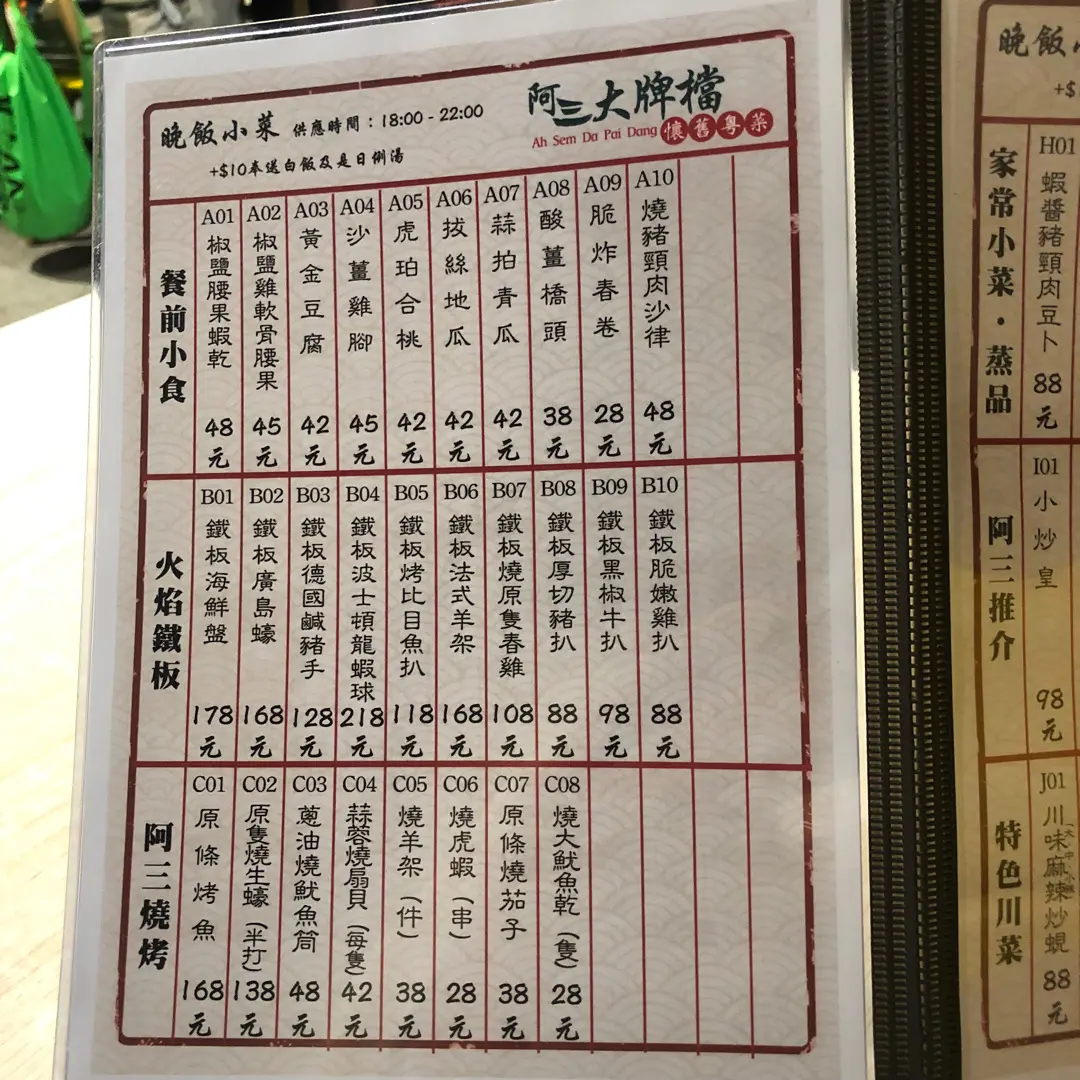 晚飯小菜 供應時間：18:00 - 22:00
+$10奉送白飯及是日例湯
阿三大牌檔
Ah Sem Da Pai Dang 懷舊粵菜
餐前小食
A01 椒鹽腰果蝦乾 48元
A02 椒鹽雞軟骨腰果 45元
A03 黃金豆腐 42元
A04 沙薑雞腳 45元
A05 虎珀合桃 42元
A06 拔絲地瓜 42元
A07 蒜拍青瓜 42元
A08 酸薑橋頭 38元
A09 脆炸春卷 28元
A10 燒豬頸肉沙律 48元
火焰鐵板
B01 鐵板海鮮盤 178元
B02 鐵板廣島蠔 168元
B03 鐵板德國鹹豬手 128元
B04 鐵板波士頓龍蝦球 218元
B05 鐵板烤比目魚扒 118元
B06 鐵板法式羊架 168元
B07 鐵板燒原隻春雞 108元
B08 鐵板厚切豬扒 88元
B09 鐵板黑椒牛扒 98元
B10 鐵板脆嫩雞扒 88元
阿三燒烤
C01 原條烤魚 168元
C02 原隻燒生蠔（半打） 138元
C03 蔥油燒魷魚筒 48元
C04 蒜蓉燒扇貝（每隻） 42元
C05 燒羊架（件） 38元
C06 燒虎蝦（串） 28元
C07 原條燒茄子 38元
C08 燒大魷魚乾（隻） 28元
晚飯小
+$
家常小菜・蒸品
H01 蝦醬豬頸肉豆卜 88元
阿三推介
I01 小炒皇 98元
特色川菜
J01 川味麻辣炒蜆 88元